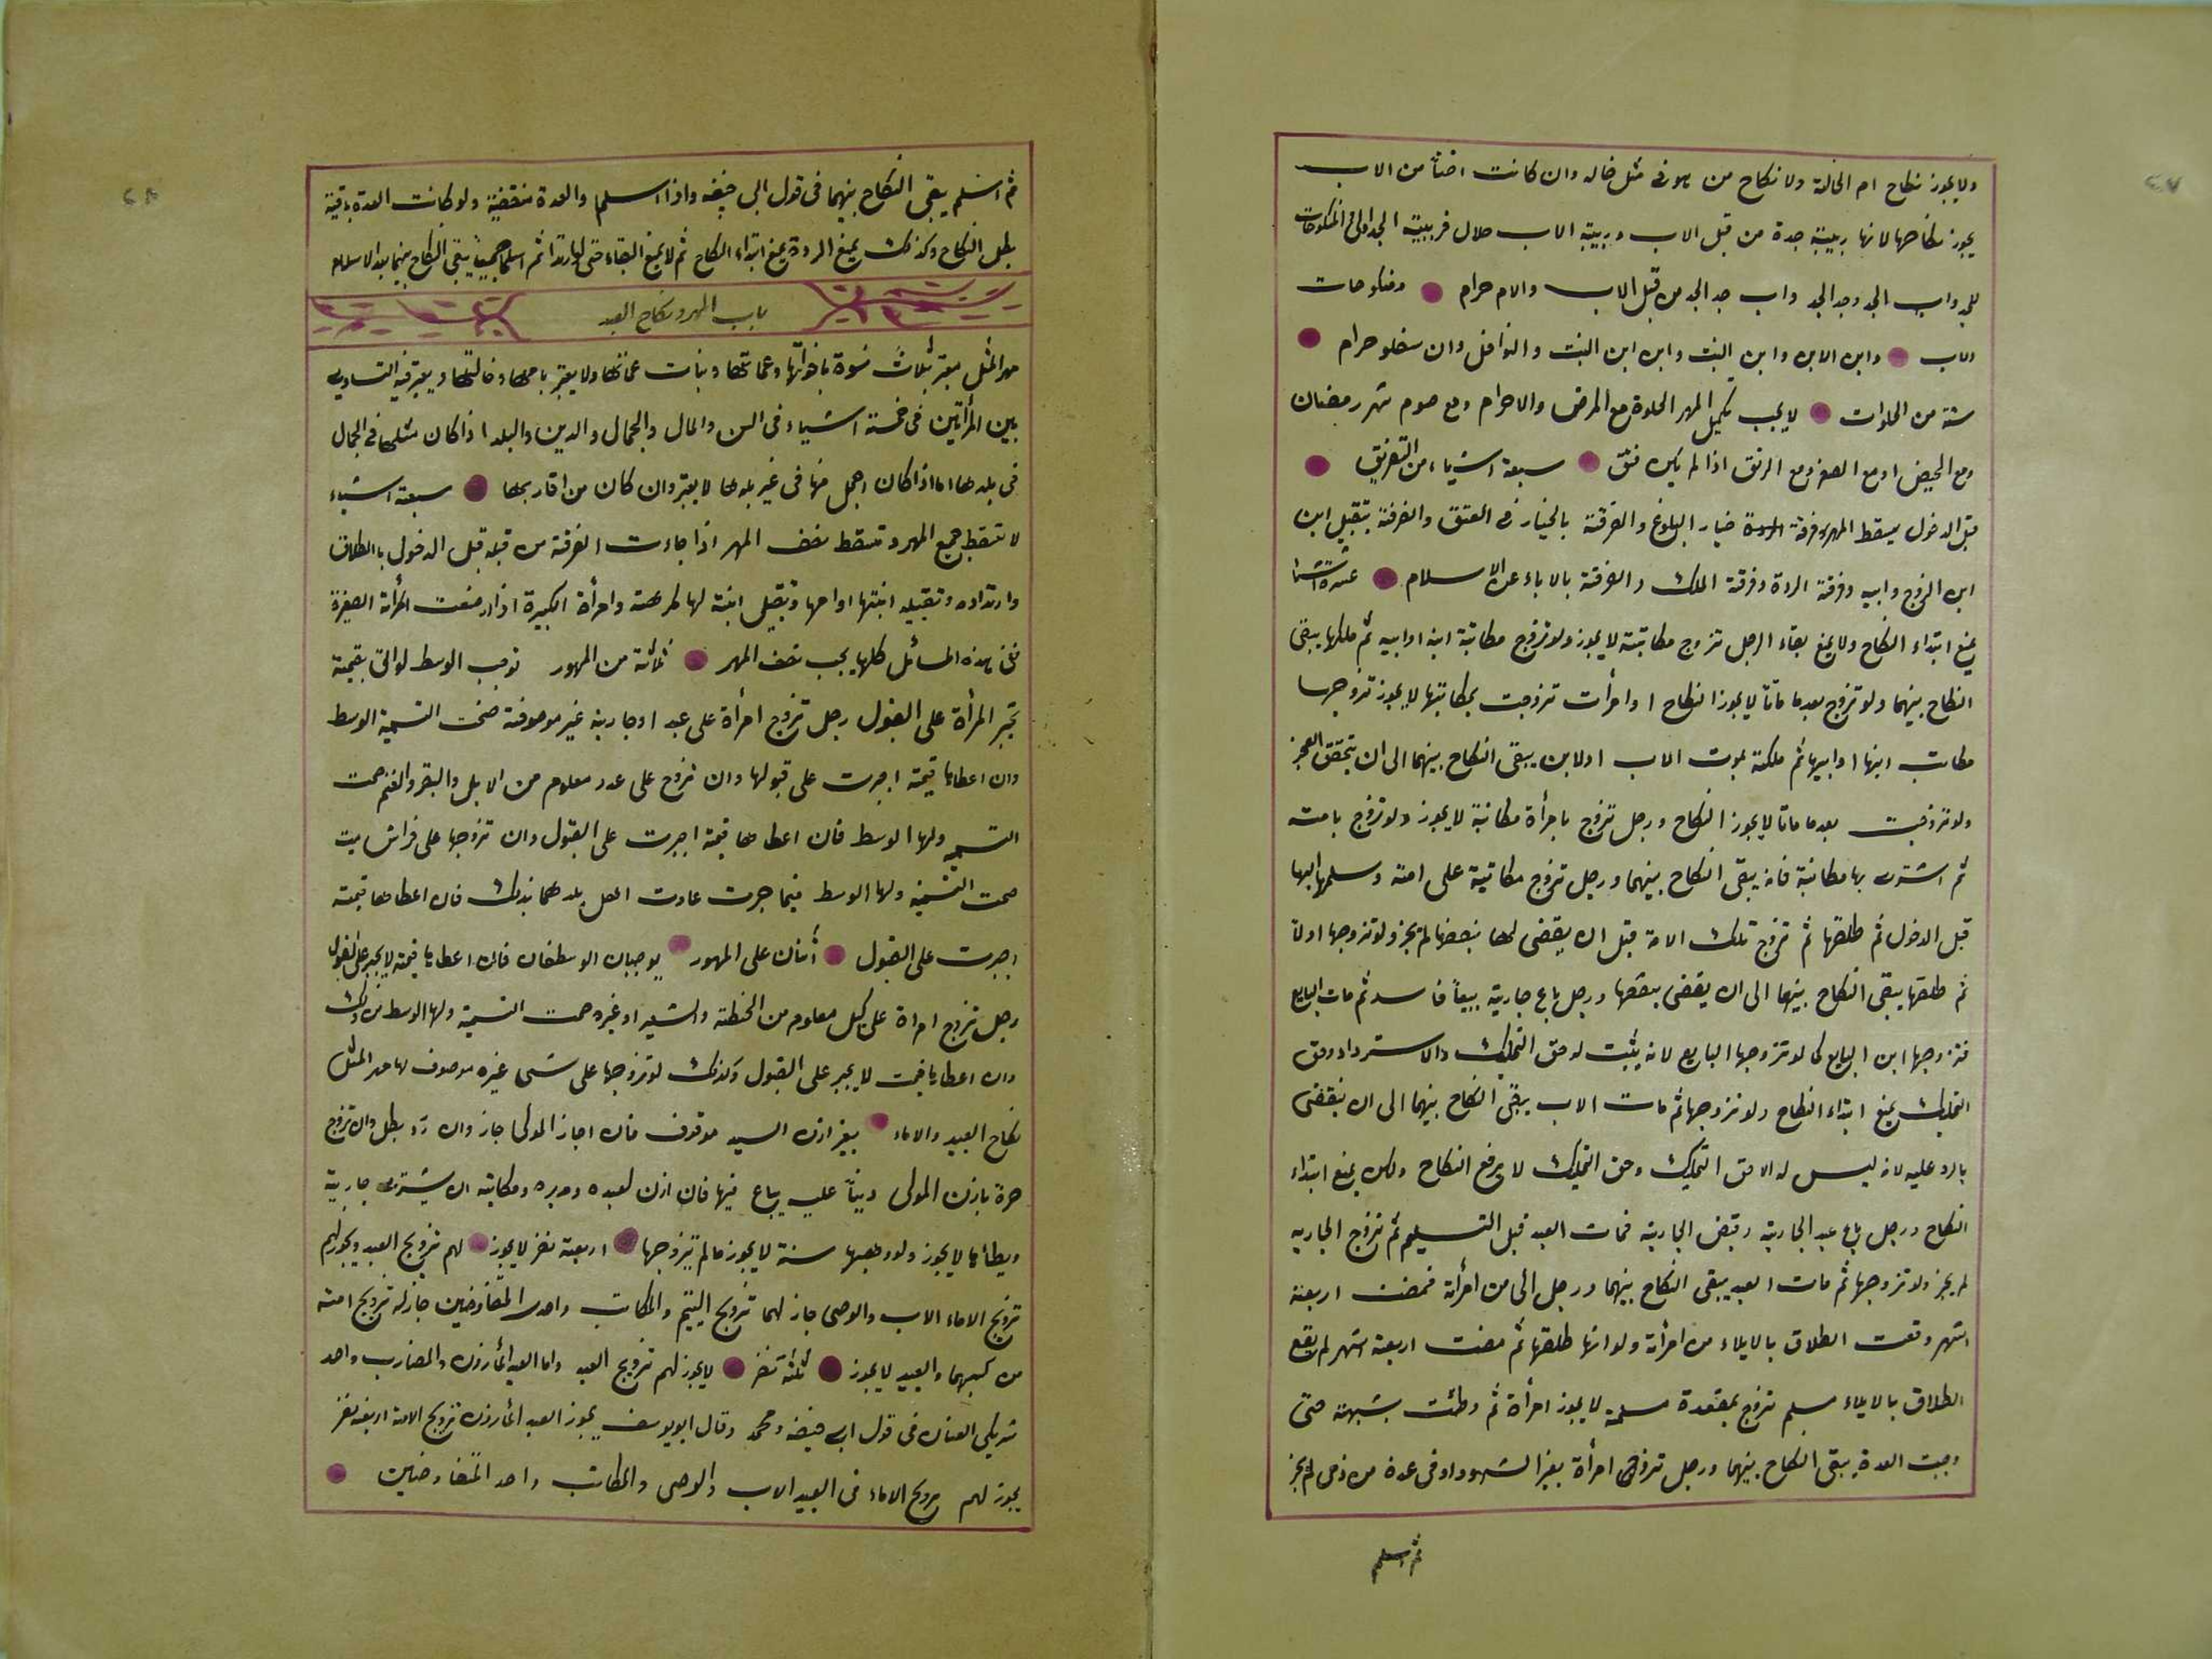 ولا يجوز نكاح ام الخالة ولا نكاح من هو فى مثل حاله وان كانت اختاً من الاب
يجوز نكاحها لانها ربيبة جدة من قبل الاب وربيبة الاب حلال فربيبة الجد اولى المنكوحات
للجد واب الجد وجد الجد واب جد الجد من قبل الاب والام حرام ومنكوحات
الاب وابن الابن وابن البنت وابن ابن البنت والنوافل وان سفلو حرام
ستة من الخلوات لا يجب تكميل المهر الخلوة مع المرض والاحرام ومع صوم شهر رمضان
ومع الحيض او مع الصغر ومع الرتق اذا لم يكن فتق سبعة اشياء من التفريق
قبل الدخول يسقط المهر فرقة خيار البلوغ والفرقة بالخيار فى العتق والفرقة بتقبيل ابن
ابن الزوج وابيه وفرقة الردة وفرقة الملك والفرقة بالاباء عن الاسلام عشرة اشيا
يمنع ابتداء النكاح ولا يمنع بقاء الرجل تزوج مكاتبته لا يجوز ولو تزوج مكاتبة ابنه او ابيه ثم ملكها يبقى
النكاح بينهما ولو تزوج بعد ما ماتا لا يجوز النكاح او امرأت تزوجت بمكاتبها لا يجوز تزوجها
مكاتب ابنها او ابيها ثم ملكته بموت الاب او لابن يبقى النكاح بينهما الى ان يتحقق العجز
ولو تزوجت بعد ما ماتا لا يجوز النكاح ورجل تزوج بامرأة مكاتبة لا يجوز ولو تزوج بامته
ثم اشترت بها مكاتبة فانه يبقى النكاح بينهما ورجل تزوج مكاتبة على امته وسلمها اليها
قبل الدخول ثم طلقها ثم تزوج تلك الامة قبل ان يقضى لها بنصفها لم يجز ولو تزوجها اولاً
ثم طلقها يبقى النكاح بينهما الى ان يقضى بنقضها ورجل باع جارية بيعاً فاسد ثم مات البايع
فتزوجها ابن البايع كما لو تزوجها البايع لانه يثبت له حق التمليك والاسترداد وحق
التمليك يمنع ابتداء النكاح ولو تزوجها ثم مات الاب يبقى النكاح بينهما الى ان ينقضى
بالرد عليه لانه ليس له الا حق التمليك وحق التمليك لا يرفع النكاح ولكن يمنع ابتداء
النكاح ورجل باع عبد الجارية وقبض الجارية فمات العبد قبل التسليم ثم تزوج الجاريه
لم يجز ولو تزوجها ثم مات العبد يبقى النكاح بينهما ورجل الى من امرأته فمضت اربعة
اشهر وقعت الطلاق بالايلاء من امرأته ولو انها طلقها ثم مضت اربعة اشهر لم يقع
الطلاق بالايلاء مسلم تزوج بمعتدة مسلمة لا يجوز امرأة ثم وطئت بشبهة حتى
وجبت العدة يبقى النكاح بينهما ورجل تزوج امرأة بغير الشهود او فى عدة من ذمى لم يجز
ثم اسلم
ثم اسلم يبقى النكاح بينهما فى قول ابى حنيفه واذا اسلم والعدة منقضية ولو كانت العدة باقية
بطل النكاح وكذلك يمنع الردة يمنع ابتداء النكاح ثم لا يمنع البقاء حتى لو ارتدا ثم اسلما جميعاً يبقى النكاح بينهما
باب المهر ونكاح العبد
مهر المثل يعتبر بثلاث نسوة باخواتها وعماتها وبنات عماتها ولا يعتبر بامها وخالتها ويعتبر فيه التساوى
بين المرأتين فى خمسة اشياء فى السن والمال والجمال والدين والبلد اذا كان مثلها فى الجمال
فى بلدها اما اذا كان اجمل منها فى غير بلدها لا يعتبر وان كان من اقاربها سبعة اشياء
لا تسقط جميع المهر وتسقط نصف المهر اذا جاءت الفرقة من قبله قبل الدخول بالطلاق
وارتداده وتقبيله ابنتها او امها وتقبيل ابنة لها وامرأة الكبيرة اذا ارضعت المرأة الصغيرة
ففى هذه المسائل كلها يجب نصف المهر ثلاثة من المهور توجب الوسط لو اتى بقيمة
تجبر المرأة على القبول رجل تزوج امرأة على عبد او جارية غير موصوفة صحت التسمية الوسط
وان اعطاها قيمته اجبرت على قبولها وان تزوج على عدد معلوم من الابل والبقر والغنم صحت
التسمية ولها الوسط فان اعطاها قيمة اجبرت على القبول وان تزوجها على فراش بيت
صحت التسمية ولها الوسط فيما جرت عادت اهل بلدهما بذلك فان اعطاها قيمته
اجبرت على القبول أثنان على المهور يوجبان الوسط فان اعطاها قيمته لا يجبر على القبول
رجل تزوج امراة على كيل معلوم من الحنطة والشعير او غيره صحت التسمية ولها الوسط من ذلك
وان اعطاها قيمت لا يجبر على القبول وكذلك لو تزوجها على شى غيره موصوف لها مهر المثل
نكاح العبيد والاماء بغير اذن السيد موقوف فان اجاز المولى جاز وان رد بطل وان تزوج
حرة باذن المولى ديناً عليه يباع فيها فان اذن لعبده ومدبره ومكاتبه ان يشترى جارية
ويطأها لا يجوز ولو وهبها سنة لا يجوز مالم يتزوجها اربعة نفر لا يجوز لهم تزويج العبد ويجوز لهم
تزويج الاماء الاب والوصى جاز لهما تزويج اليتيم والمكاتب واحد المتفاوضين جاز له تزويج امته
من كسبهما والعبيد لا يجوز ثلثة نفر لا يجوز لهم تزويج العبد واما العبد المأذون والمضارب واحد
شريكى العنان فى قول ابى حنيفه ومحمد وقال ابو يوسف يجوز العبد المأذون تزويج الامة اربعة نفر
يجوز لهم تزويج الاماء فى العبيد الاب والوصى والمكاتب واحد المتفاوضين